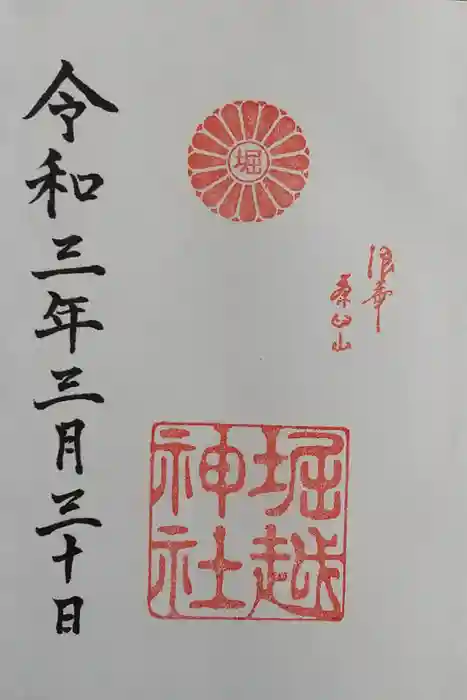 浪華
茶臼山
堀
堀越
神社
令和三年三月三十日